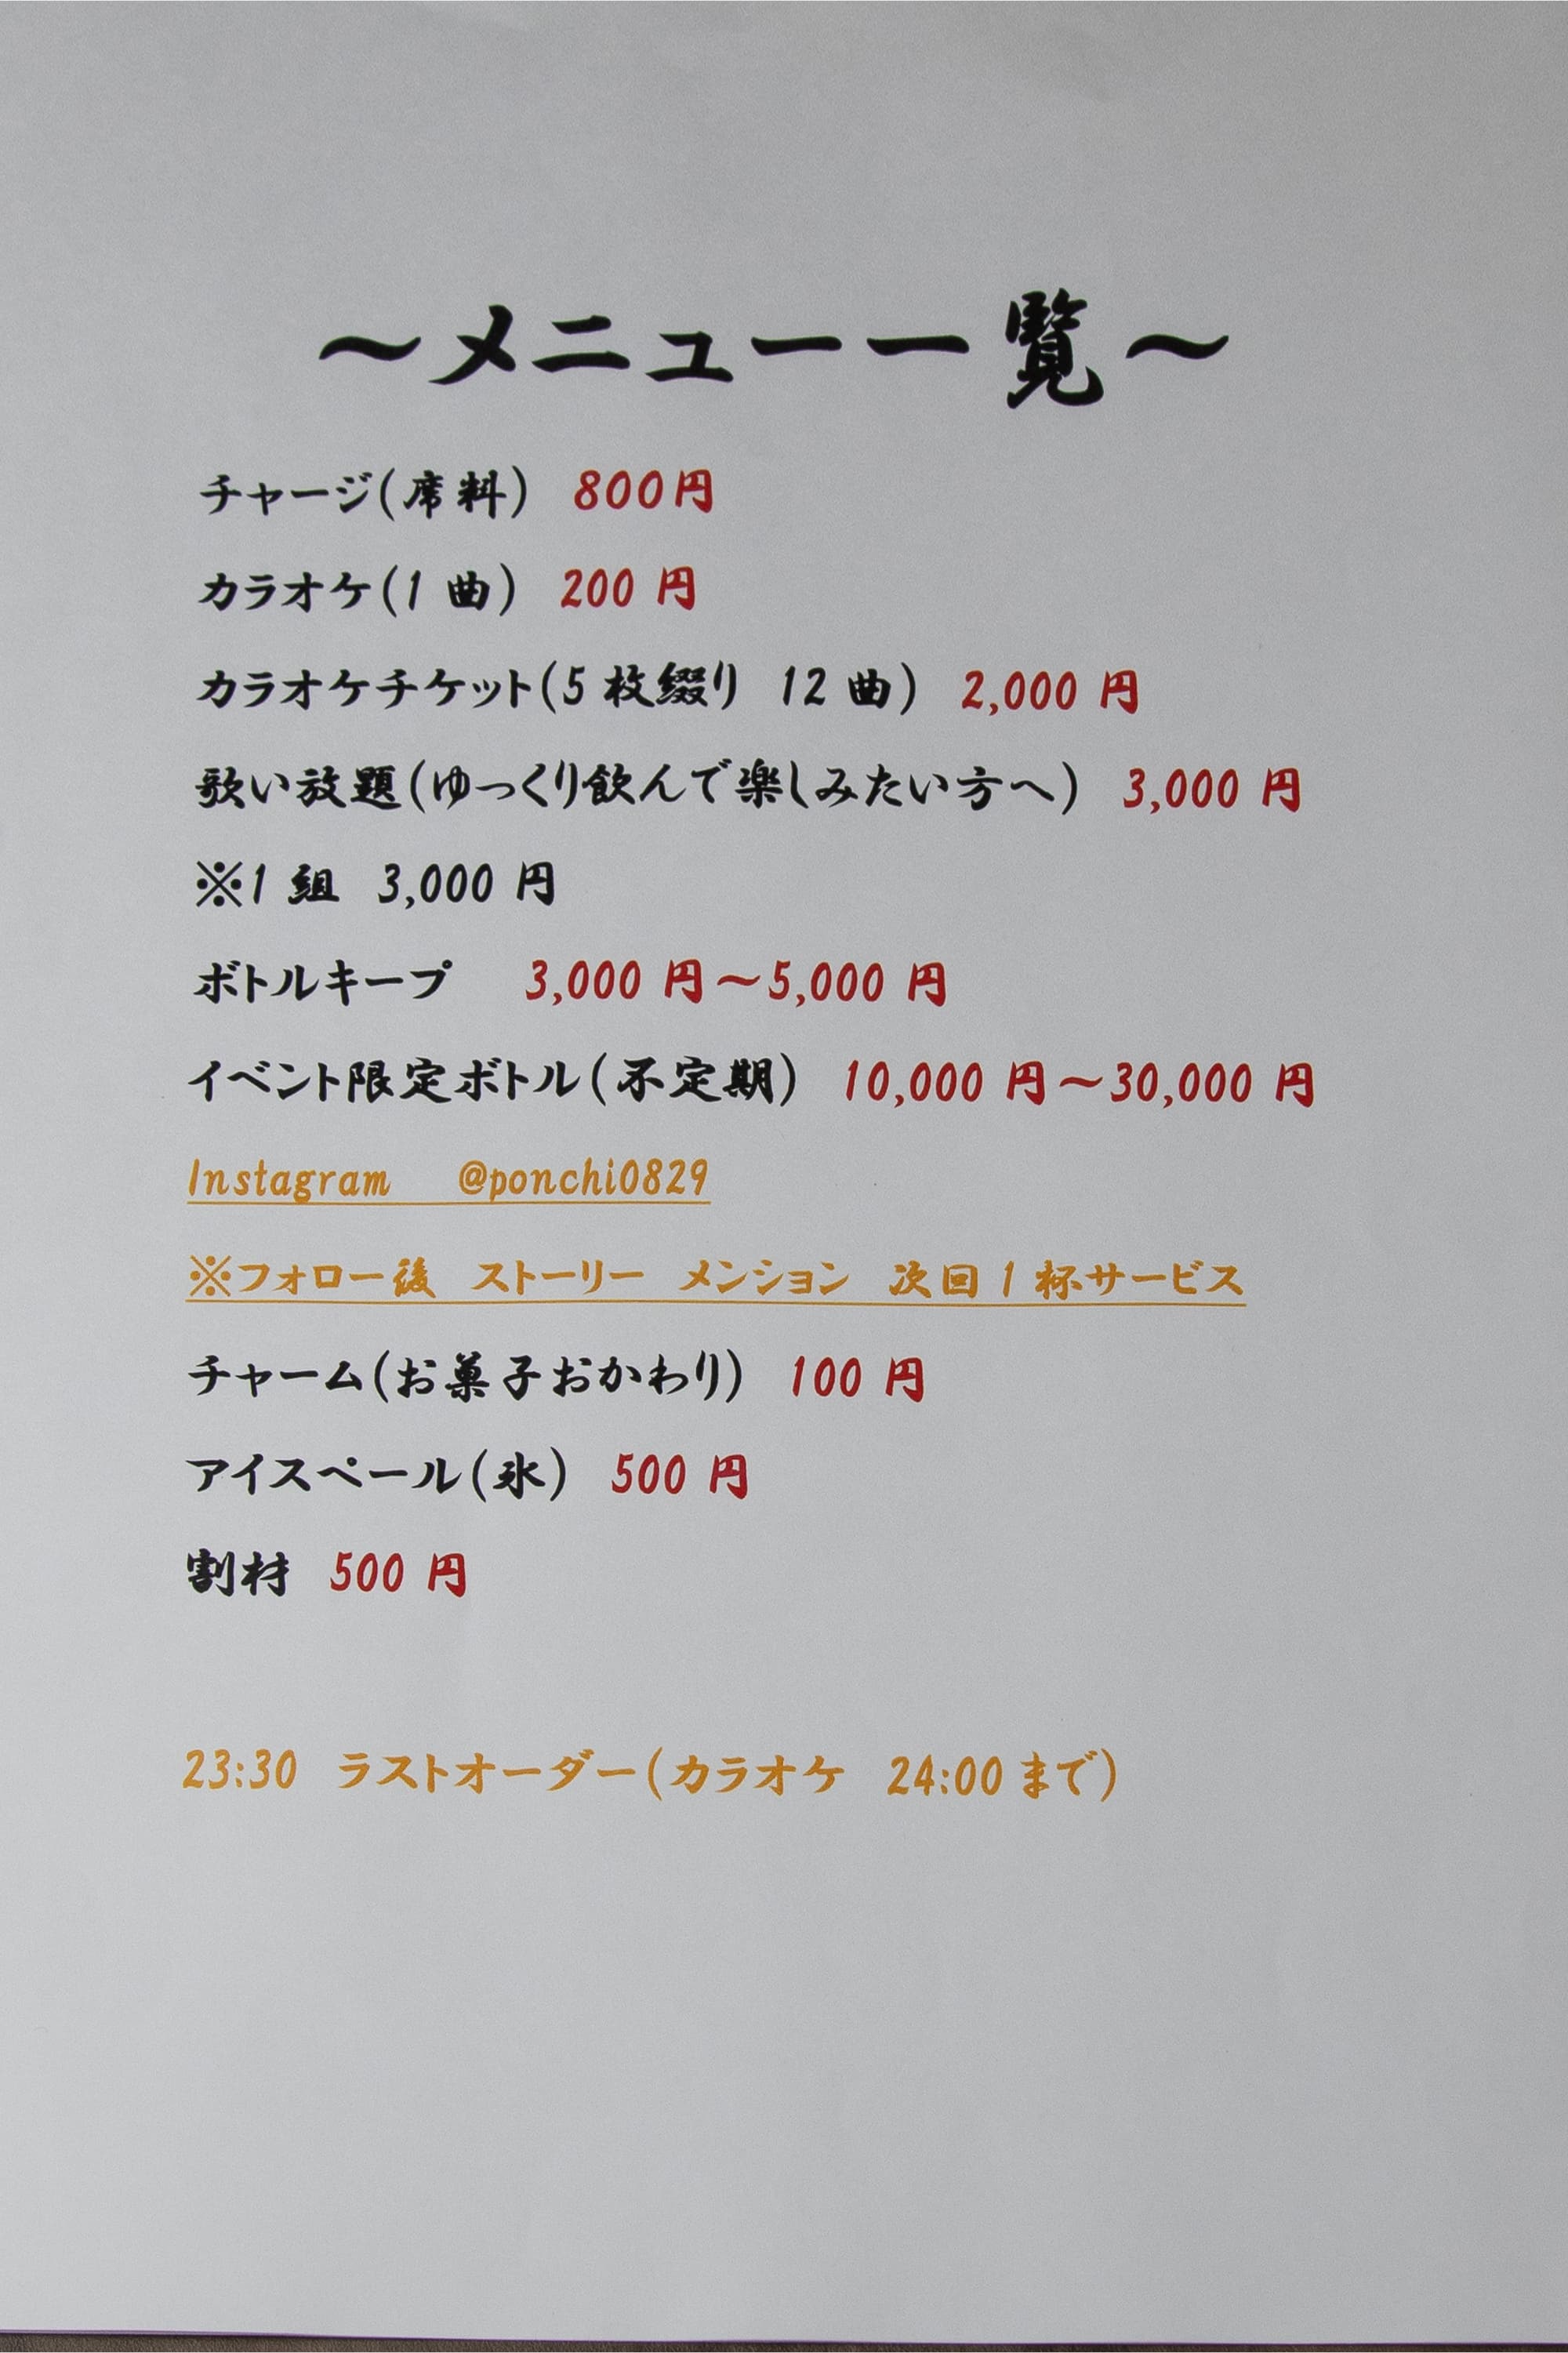 ～メニュー一覧～
チャージ(席料) 800円
カラオケ(1 曲) 200 円
カラオケチケット(5 枚綴り 12 曲) 2,000 円
歌い放題(ゆっくり飲んで楽しみたい方へ) 3,000 円
※1 組 3,000 円
ボトルキープ 3,000 円～5,000 円
イベント限定ボトル(不定期) 10,000 円～30,000 円
Instagram @ponchi0829
※フォロー後 ストーリー メンション 次回 1 杯サービス
チャーム(お菓子おかわり) 100 円
アイスペール(氷) 500 円
割材 500 円
23:30 ラストオーダー(カラオケ 24:00 まで)